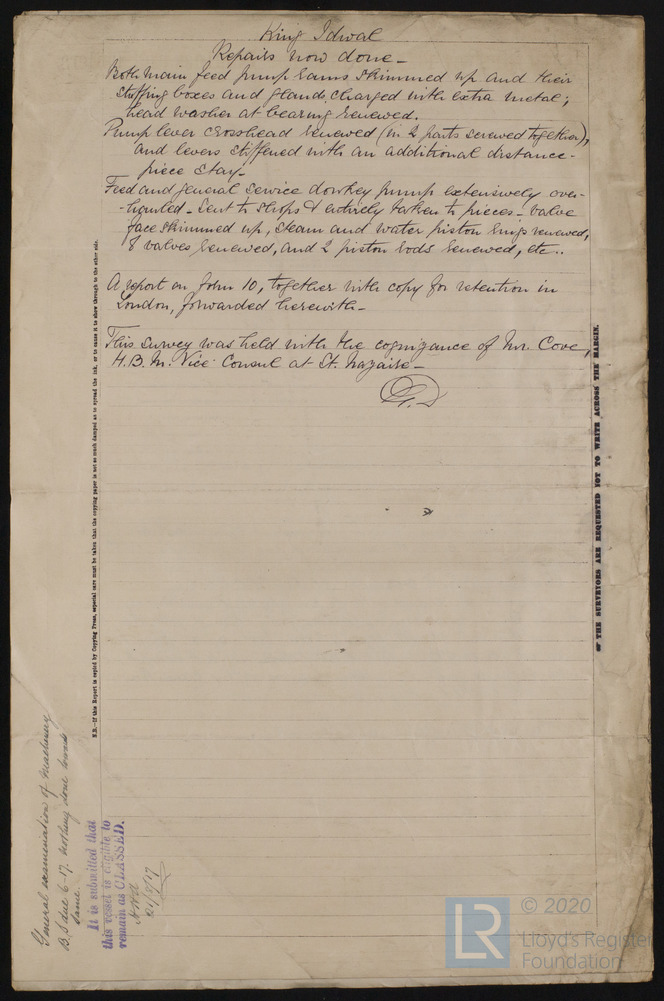 King Idwal
Repairs now done -
Both main feed pump rams skimmed up and their
stuffing boxes and glands charged with extra metal;
head washer at bearing renewed.
Pump lever crosshead renewed (in 2 parts screwed together),
and levers stiffened with an additional distance-
piece stay-
Feed and general service donkey pump extensively over-
-hauled - sent to shops & entirely taken to pieces - valve
face skimmed up, steam and water piston rings renewed,
8 valves renewed, and 2 piston rods renewed, etc..
A report on Form 10, together with copy for retention in
London, forwarded herewith-
This survey was held with the cognizance of Mr. Cove,
H.B.M. Vice Consul at St. Nazaire-
N.B.—If this Report is copied by Copying Press, especial care must be taken that the copying paper is not so much damped as to spread the ink, or to cause it to show through to the other side.
THE SURVEYORS ARE REQUESTED NOT TO WRITE ACROSS THE MARGIN.
General examination of Machinery
B.S due 6-17. Nothing done towards
same.
It is submitted that
this vessel is eligible to
remain as CLASSED.
LR
© 2020
Lloyd's Register
Foundation